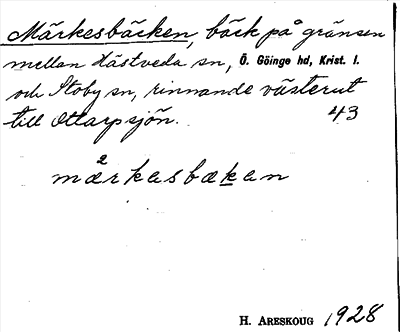 Märkesbäcken, bäck på gränsen
mellan Hästveda sn, Ö. Göinge hd, Krist. l.
och Stoby sn, rinnande västerut
till Ottarpsjön. 43
2
mærkasbækan
H. ARESKOUG 1928